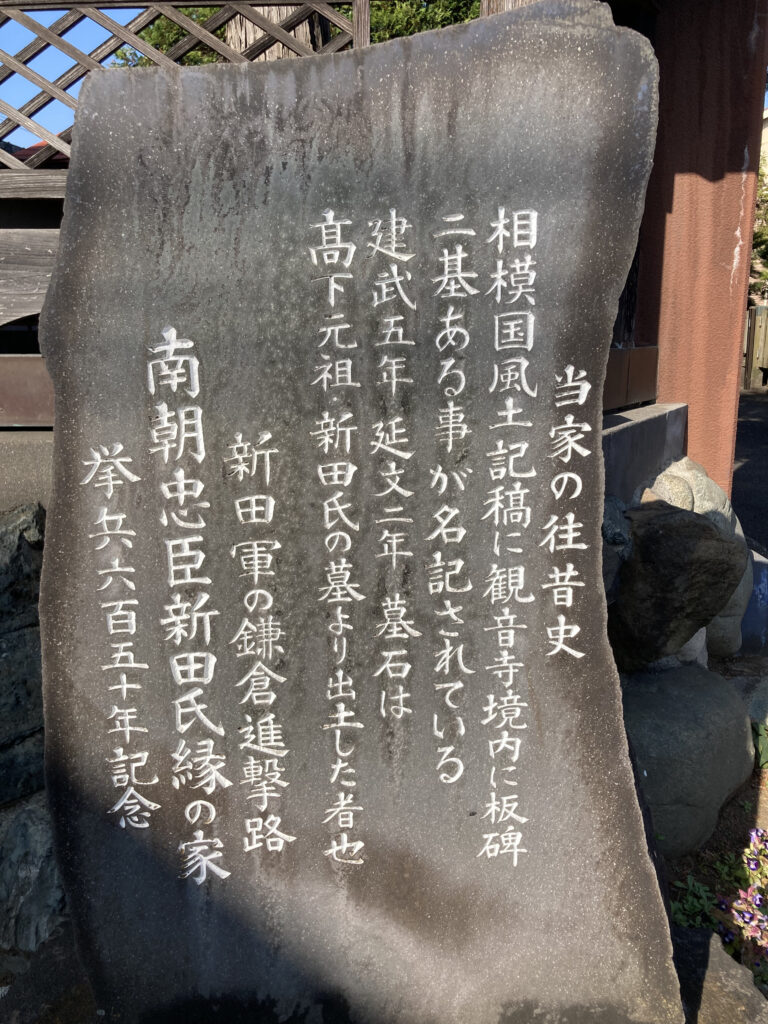 当家の往昔史
相模国風土記稿に観音寺境内に板碑
二基ある事が名記されている
建武五年 延文二年 墓石は
髙下元祖・新田氏の墓より出土した者也
新田軍の鎌倉進撃路
南朝忠臣新田氏縁の家
挙兵六百五十年記念